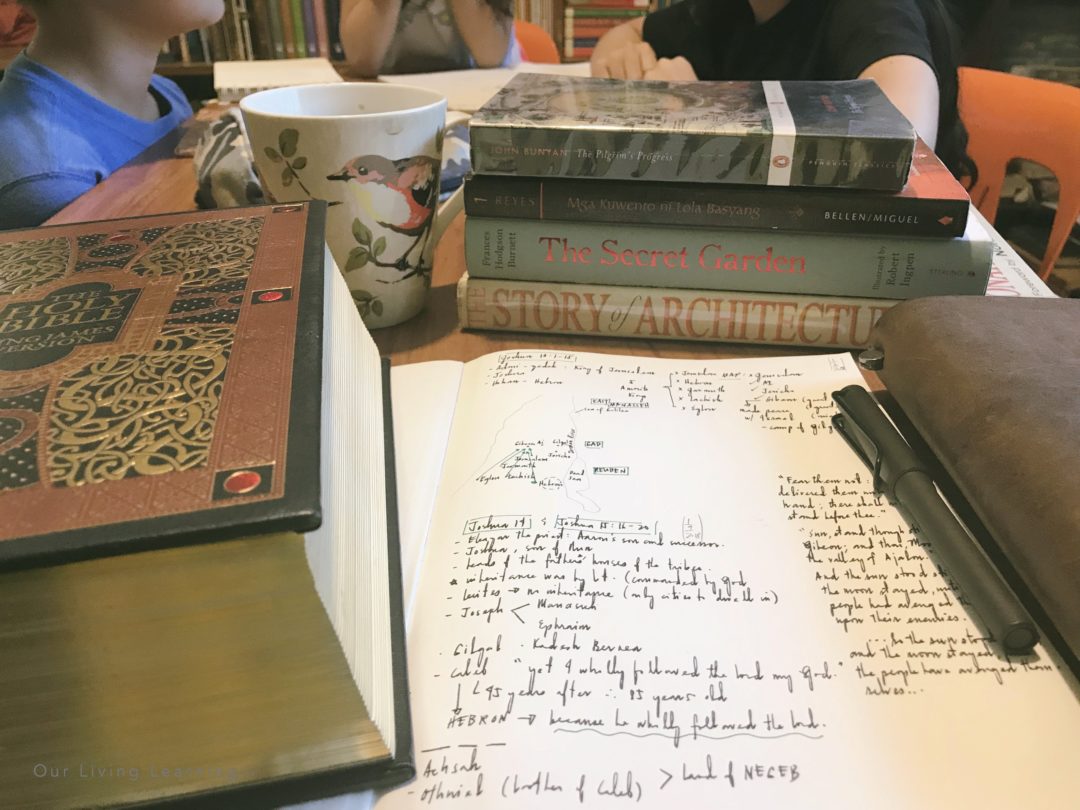 THE
HOLY
BIBLE
KING JAMES
VERSION
JOHN BUNYAN The Pilgrim's Progress PENGUIN CLASSICS
REYES Mga Kuwento ni Lola Basyang BELLEN/MIGUEL
Frances
Hodgson
Burnett
The Secret Garden
Illustrated by
Robert
Ingpen
STERLING
THE STORY of ARCHITECTU
King of Jerusalem
- Joshua
- Hebron
Amorite
King
MAP
x Hebron
x Lachish
x Eglon
Jericho
made peace
EAST MANASSEH
Sea of Galilee
GAD
Gibeon Ai
Gilgal
Jerusalem Jericho
REUBEN
Eglon Lachish
Hebron
Dead
Sea
"Fear them not:
delivered them
hand; there shall
stand before thee."
"Sun, stand thou st
Gibeon; and thou, Moo
the valley of Ajalon
And the sun stood s
the moon stayed,
people had avenged
upon their enemies.
... So the sun stood
and the moon stayed
the people have avenged them
selves...
Joshua 14 & Joshua 15:16-20
- Eleazar the priest: Aaron's son and successor.
- Joshua, son of Nun
- heads of the fathers' houses of the tribes.
inheritance was by lot. (commanded by God
- Levites → no inheritance (only cities to dwell in)
- Joseph < Manasseh
Ephraim
- Gilgal - Kadesh Barnea
- Caleb "yet I wholly followed the Lord my God."
45 years after ∴ 85 years old
HEBRON → because he wholly followed the Lord.
- Achsah
- Othniel (brother of Caleb) > land of NEGEB
Our Living Learning